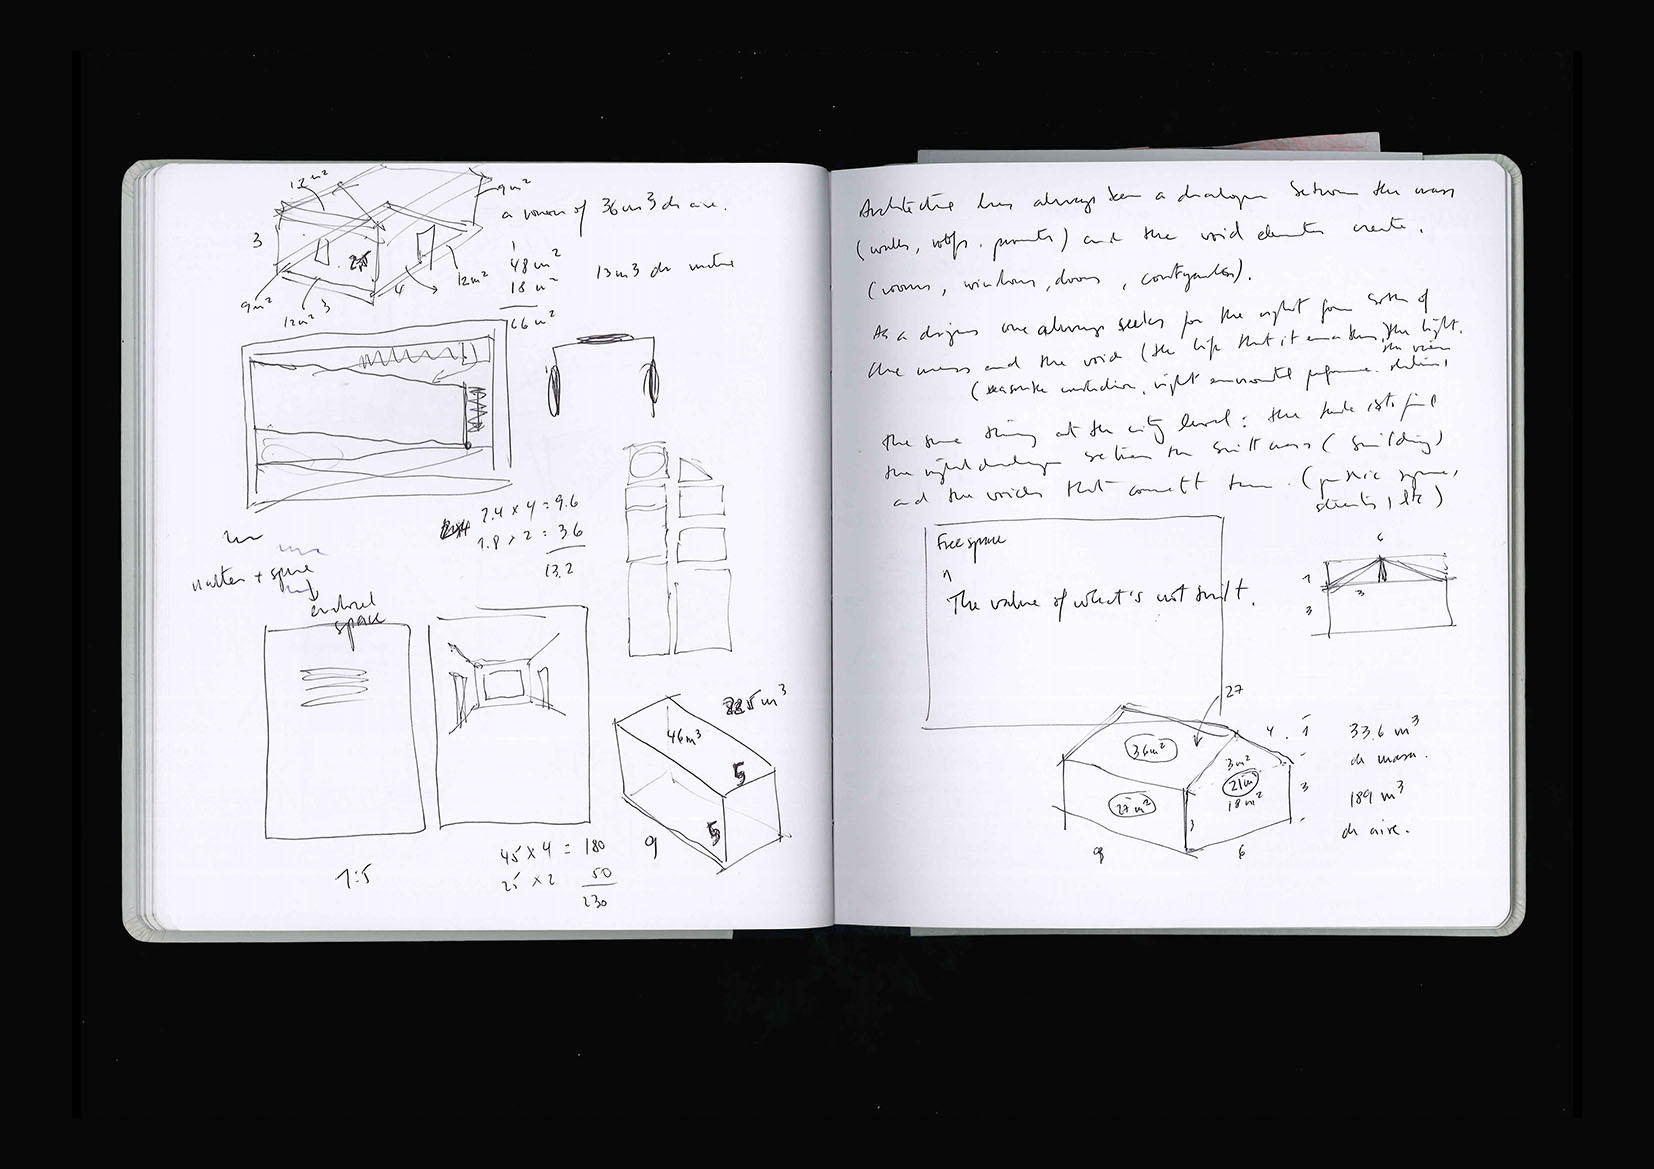 12m²
9m²
a room of 36m3 de aire.
3
25
48m²
18m²
13m3 de
12m²
9m²
12m²
3
4
66m²
2.4 x 4 = 9.6
1.8 x 2 = 3.6
13.2
matter + space
enclosed
space
225m³
46m³
5
5
9
45 x 4 = 180
25 x 2 50
230
1:5
Architecture has always been a dialogue between the mass
(walls, roofs, ) and the void elements create.
(rooms, windows, doors, courtyards).
As a designer one always seeks for the right form both of
the mass and the void (the life that it the light.
the view
right environmental
The same thing at the city level: the is to find
the right dialogue between the built mass (building)
and the voids that connect them. (public squares,
streets, etc)
Free space
The value of what's not built.
6
1
3
3
27
4.1
33.6 m³
de masa.
36m²
3m²
21m
18m²
27m²
3
3
189 m³
de aire.
9
6